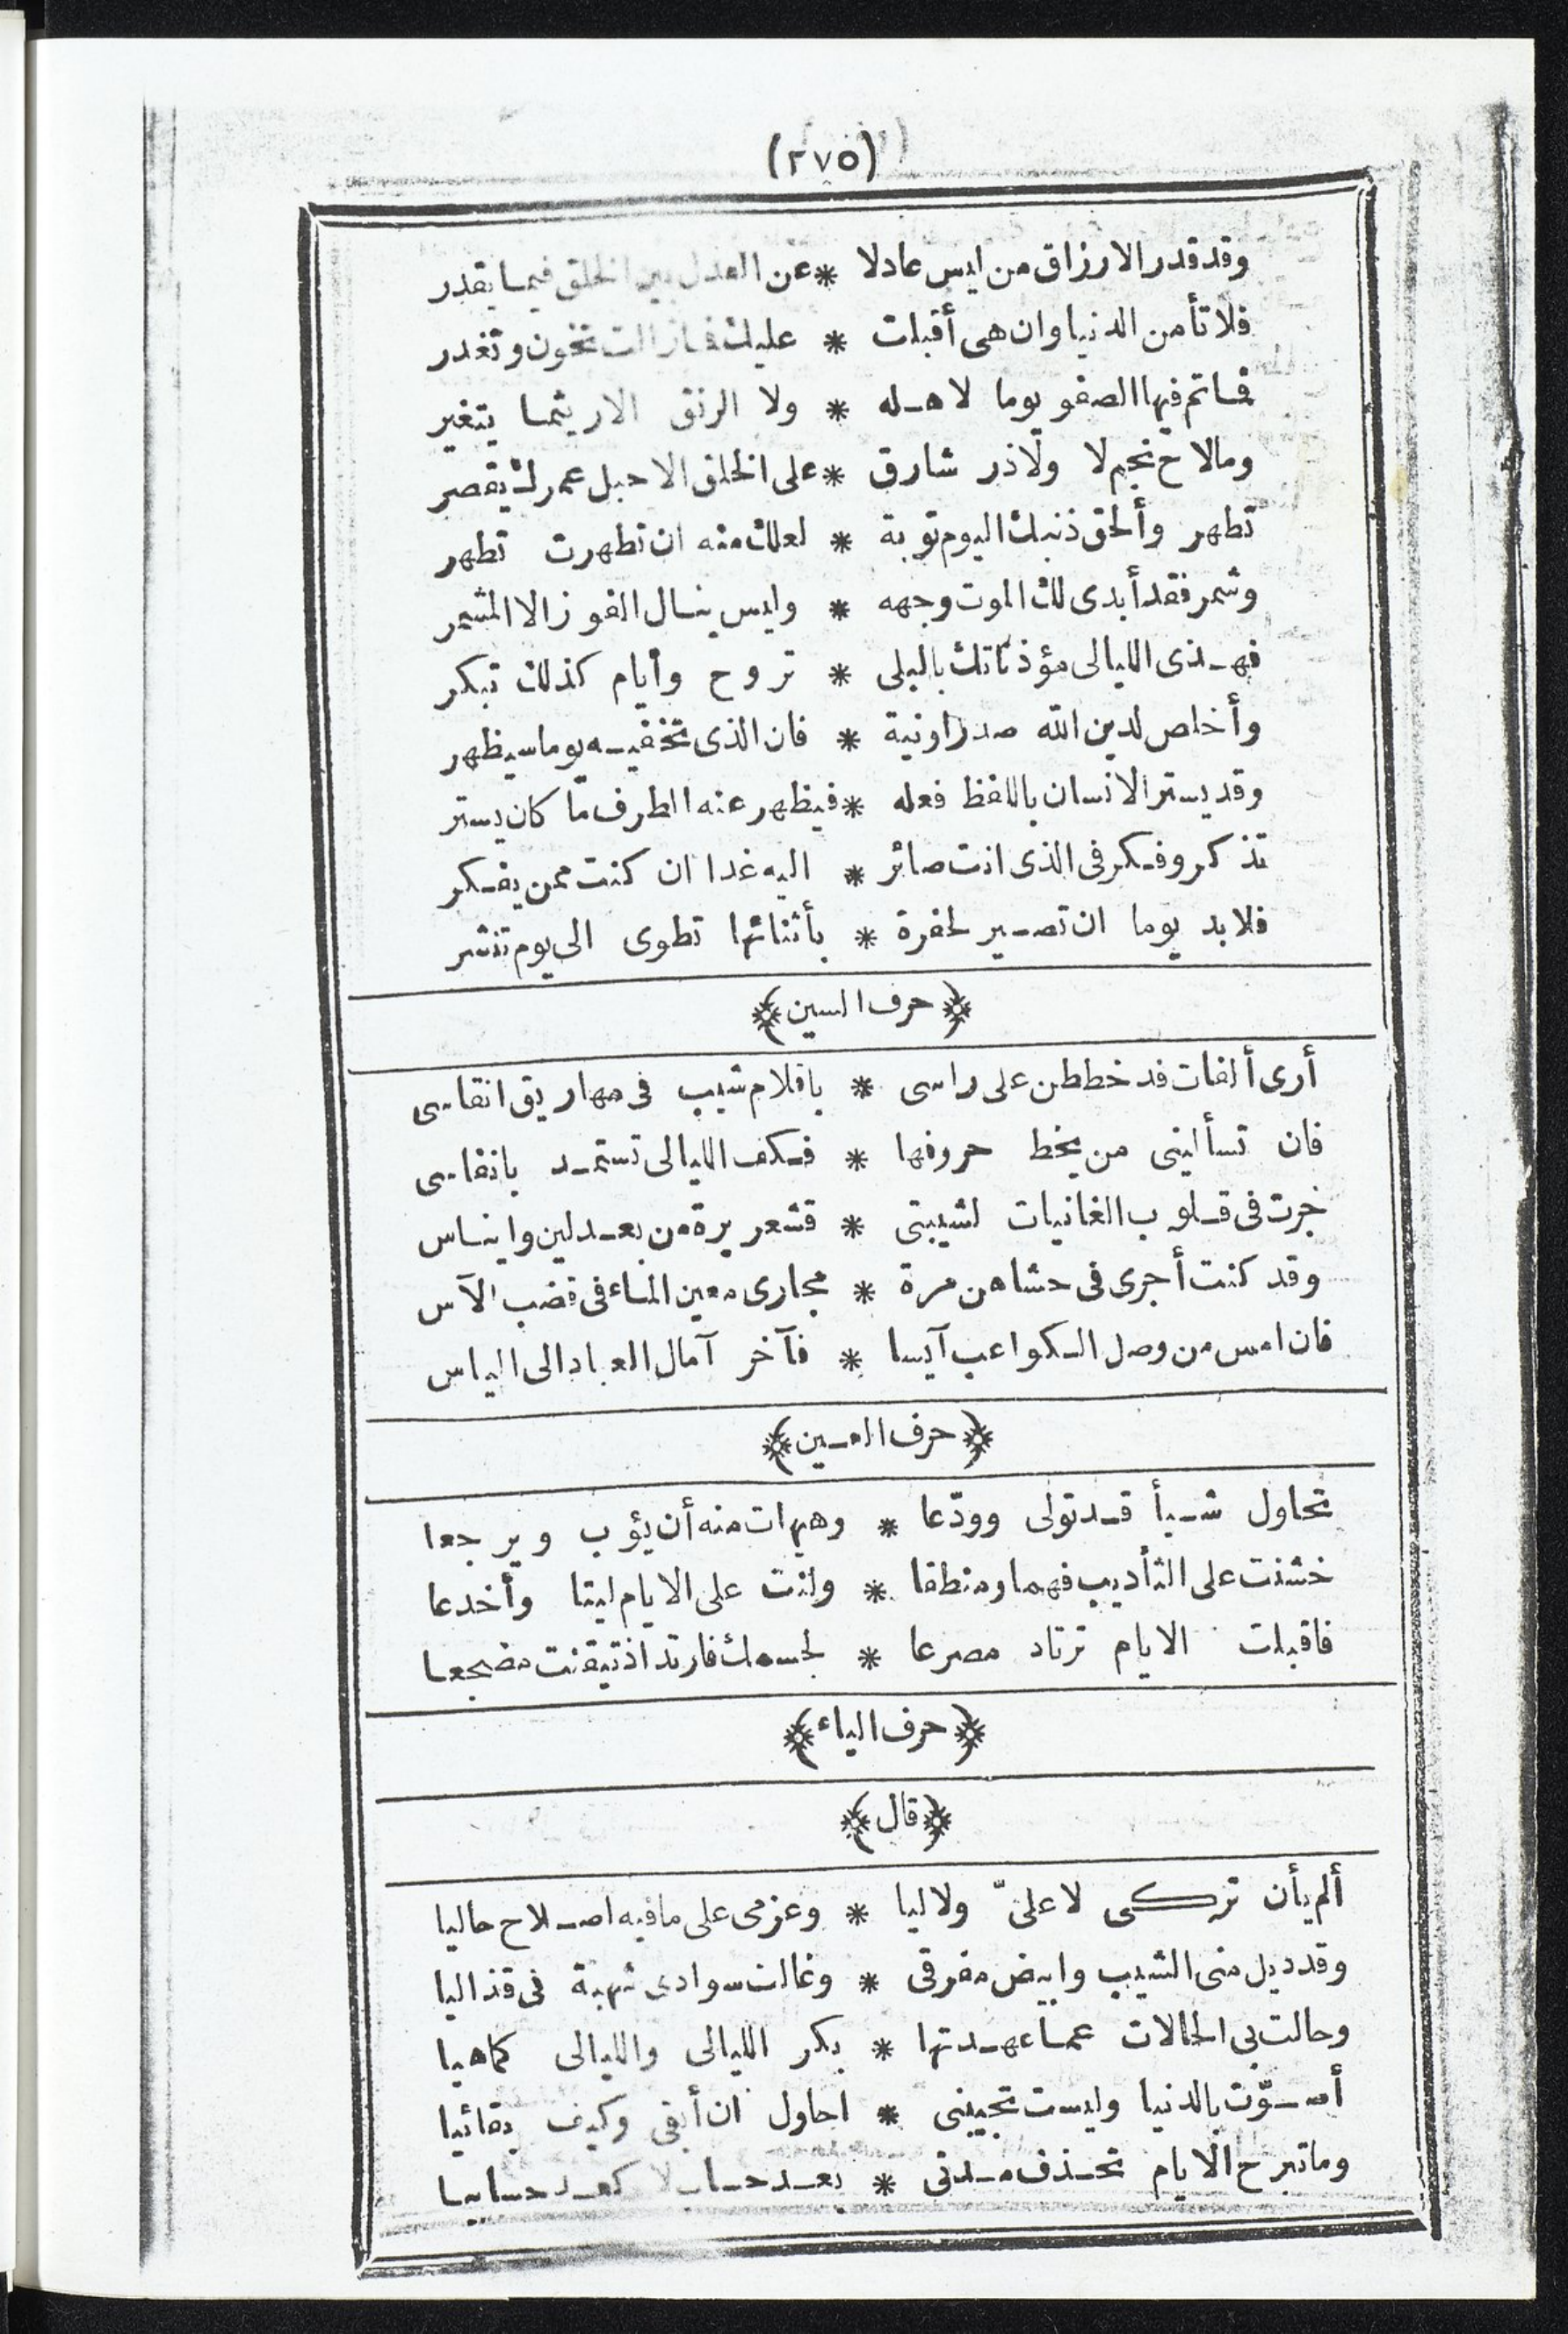 (٢٧٥)
وقد قدر الارزاق من ليس عادلا * عن العدل بين الخلق فيما يقدر
فلا تأمن الدنيا وان هى أقبلت * عليك فما زالت تخون وتغدر
فما تم فيها الصفو يوما لاهله * ولا الرنق الا ريثما يتغير
وما لاح نجم لا ولا ذر شارق * على الخلق الا حبل عمرك يقصر
تطهر وألحق ذنبك اليوم توبة * لعلك منه ان تطهرت تطهر
وشمر فقد أبدى لك الموت وجهه * وليس ينال الفوز الا المشمر
فهذى الليالى مؤذناتك بالبلى * تروح وأيام كذلك تبكر
وأخلص لدين الله صدرا ونية * فان الذى تخفيه يوما سيظهر
وقد يستر الانسان باللفظ فعله * فيظهر عنه الطرف ما كان يستر
تذكر وفكر فى الذى انت صائر * اليه غدا ان كنت ممن يفكر
فلا بد يوما ان تصير لحفرة * بأثنائها تطوى الى يوم تنشر
﴿حرف السين﴾
أرى ألفات قد خططن على راسى * باقلام شيب فى مهاريق انقاسى
فان تسألينى من يخط حروفها * فكف الليالى تستمد بانقاسى
جرت فى قلوب الغانيات لشيبتى * قشعريرة من بعد لين وايناس
وقد كنت أجرى فى حشاهن مرة * مجارى معين الماء فى قضب الآس
فان امس من وصل الكواعب آيسا * فآخر آمال العباد الى الياس
﴿حرف العين﴾
تحاول شيأ قد تولى وودّعا * وهيهات منه أن يؤب ويرجعا
خشنت على التأديب فهما ومنطقا * ولنت على الايام ليتا وأخدعا
فاقبلت الايام ترتاد مصرعا * لجسمك فارتد اذ تيقنت مضجعا
﴿حرف الياء﴾
﴿قال﴾
ألم يأن تركى لا علىّ ولا ليا * وعزمى على ما فيه اصلاح حاليا
وقد ديل منى الشيب وابيض مفرقى * وغالت سوادى شهبة فى قذاليا
وحالت بى الحالات عما عهدتها * بكر الليالى والليالى كماهيا
أصوّت بالدنيا وليست تجيبنى * احاول ان أبقى وكيف بقائيا
وما تبرح الايام تحذف مدتى * بعد حساب لا كعد حسابيا